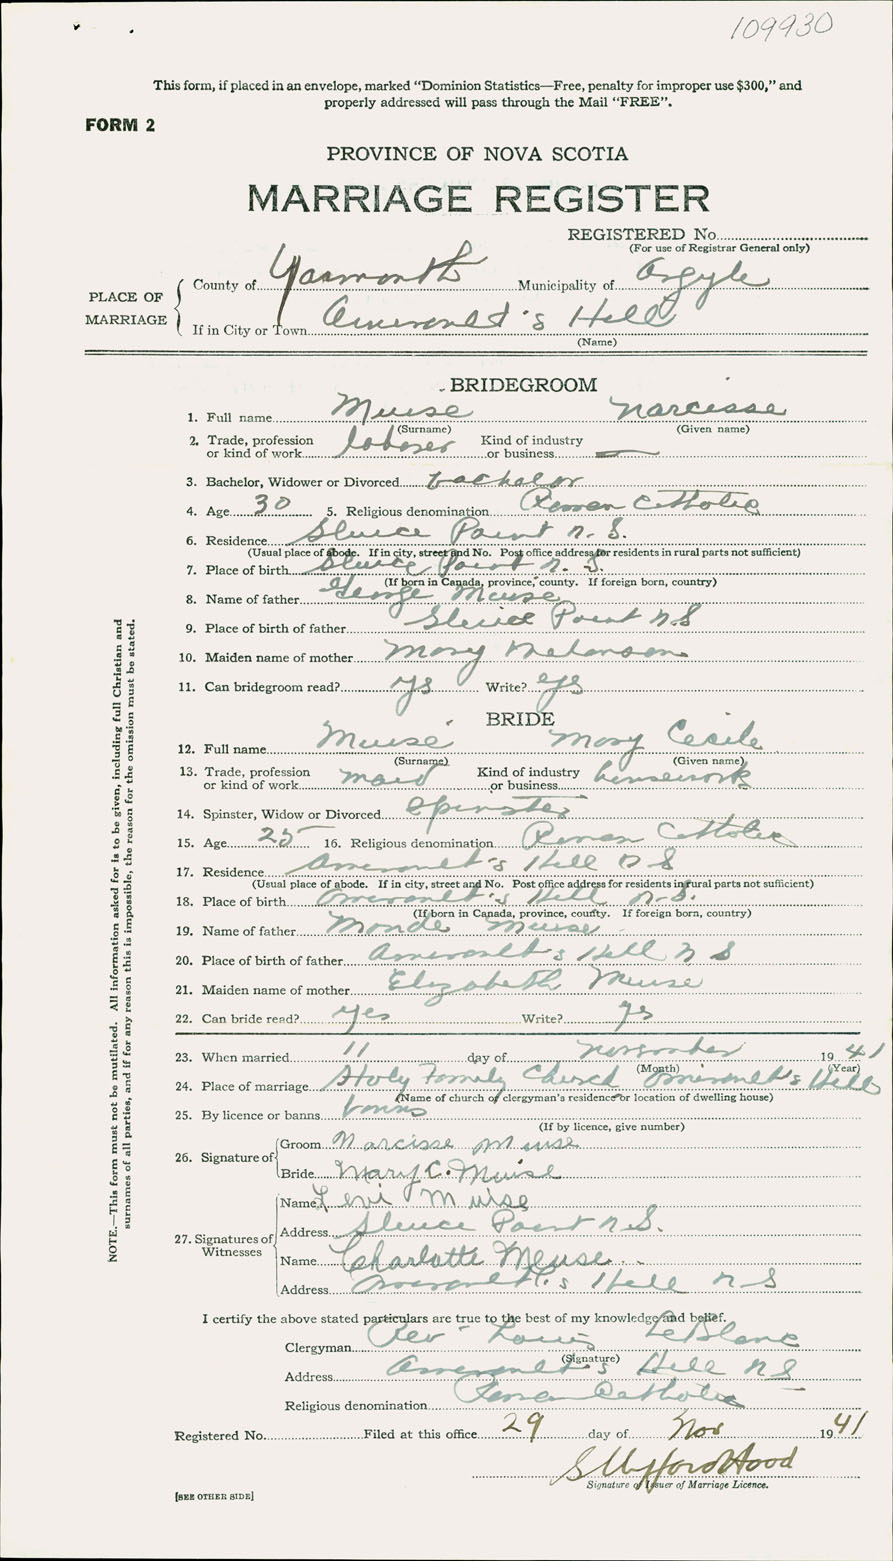 109930
This form, if placed in an envelope, marked “Dominion Statistics—Free, penalty for improper use $300,” and
properly addressed will pass through the Mail “FREE”.
FORM 2
PROVINCE OF NOVA SCOTIA
MARRIAGE REGISTER
REGISTERED No.
(For use of Registrar General only)
PLACE OF MARRIAGE
County of Yarmouth Municipality of Argyle
If in City or Town Amirault's Hill
(Name)
BRIDEGROOM
1. Full name Muise Narcisse
(Surname) (Given name)
2. Trade, profession or kind of work laborer Kind of industry or business —
3. Bachelor, Widower or Divorced bachelor
4. Age 30 5. Religious denomination Roman Catholic
6. Residence Sluice Point N.S.
(Usual place of abode. If in city, street and No. Post office address for residents in rural parts not sufficient)
7. Place of birth Sluice Point N.S.
(If born in Canada, province, county. If foreign born, country)
8. Name of father George Muise
9. Place of birth of father Sluice Point N.S
10. Maiden name of mother Mary Melanson
11. Can bridegroom read? yes Write? yes
BRIDE
12. Full name Muise Mary Cecile
(Surname) (Given name)
13. Trade, profession or kind of work maid Kind of industry or business housework
14. Spinster, Widow or Divorced Spinster
15. Age 25 16. Religious denomination Roman Catholic
17. Residence Amirault's Hill N S
(Usual place of abode. If in city, street and No. Post office address for residents in rural parts not sufficient)
18. Place of birth Amirault's Hill N.S.
(If born in Canada, province, county. If foreign born, country)
19. Name of father Mande Muise
20. Place of birth of father Amirault's Hill N S
21. Maiden name of mother Elizabeth Muise
22. Can bride read? yes Write? yes
23. When married 11 day of November 1941
(Month) (Year)
24. Place of marriage Holy Family Church Amirault's Hill
(Name of church or clergyman's residence or location of dwelling house)
25. By licence or banns banns
(If by licence, give number)
26. Signature of
Groom Narcisse Muise
Bride Mary C. Muise
27. Signatures of Witnesses
Name Levi Muise
Address Sluice Point N.S.
Name Charlotte Meuse
Address Amirault's Hill N S
I certify the above stated particulars are true to the best of my knowledge and belief.
Clergyman Rev Louis LeBlanc
(Signature)
Address Amirault's Hill N S
Religious denomination Roman Catholic
Registered No. Filed at this office 29 day of Nov 1941
Hood
Signature of Issuer of Marriage Licence.
[SEE OTHER SIDE]
NOTE.—This form must not be mutilated. All information asked for is to be given, including full Christian and
surnames of all parties, and if for any reason this is impossible, the reason for the omission must be stated.